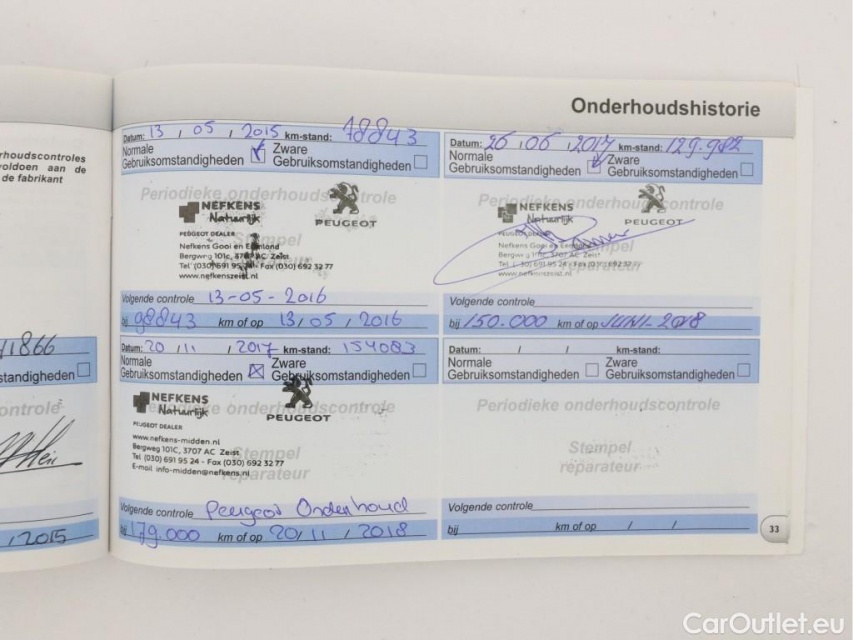 Onderhoudshistorie
rhoudscontroles
voldoen aan de
de fabrikant
1866
standigheden
ontrole
, 2015
Datum: 13 / 05 / 2015 km-stand: 78843
Normale Gebruiksomstandigheden Zware Gebruiksomstandigheden
Periodieke onderhoudscontrole
NEFKENS
Natuurlijk
PEUGEOT
PEUGEOT DEALER
Nefkens Gooi en Eemland
Bergweg 101c, 3707 AC Zeist
Tel (030) 691 95 24 - Fax (030) 692 32 77
www.nefkenszeist.nl
Stempel
reparateur
Volgende controle 13-05-2016
bij 98843 km of op 13 / 05 / 2016
Datum: 26 / 06 / 2017 km-stand: 129.982
Normale Gebruiksomstandigheden Zware Gebruiksomstandigheden
Periodieke onderhoudscontrole
NEFKENS
Natuurlijk
PEUGEOT
PEUGEOT DEALER
Nefkens Gooi en Eemland
Bergweg 101c, 3707 AC Zeist
Tel (030) 691 95 24 - Fax (030) 692 32 77
www.nefkenszeist.nl
Stempel
reparateur
Volgende controle
bij 150.000 km of op JUNI-2018
Datum: 20 / 11 / 2017 km-stand: 154083
Normale Gebruiksomstandigheden Zware Gebruiksomstandigheden
Periodieke onderhoudscontrole
NEFKENS
Natuurlijk
PEUGEOT
PEUGEOT DEALER
www.nefkens-midden.nl
Bergweg 101C, 3707 AC Zeist
Tel (030) 691 95 24 - Fax (030) 692 32 77
E-mail info-midden@nefkens.nl
Stempel
reparateur
Volgende controle Peugeot Onderhoud
bij 179.000 km of op 20 / 11 / 2018
Datum: / / km-stand:
Normale Gebruiksomstandigheden Zware Gebruiksomstandigheden
Periodieke onderhoudscontrole
Stempel
reparateur
Volgende controle
bij km of op / /
33
CarOutlet.eu